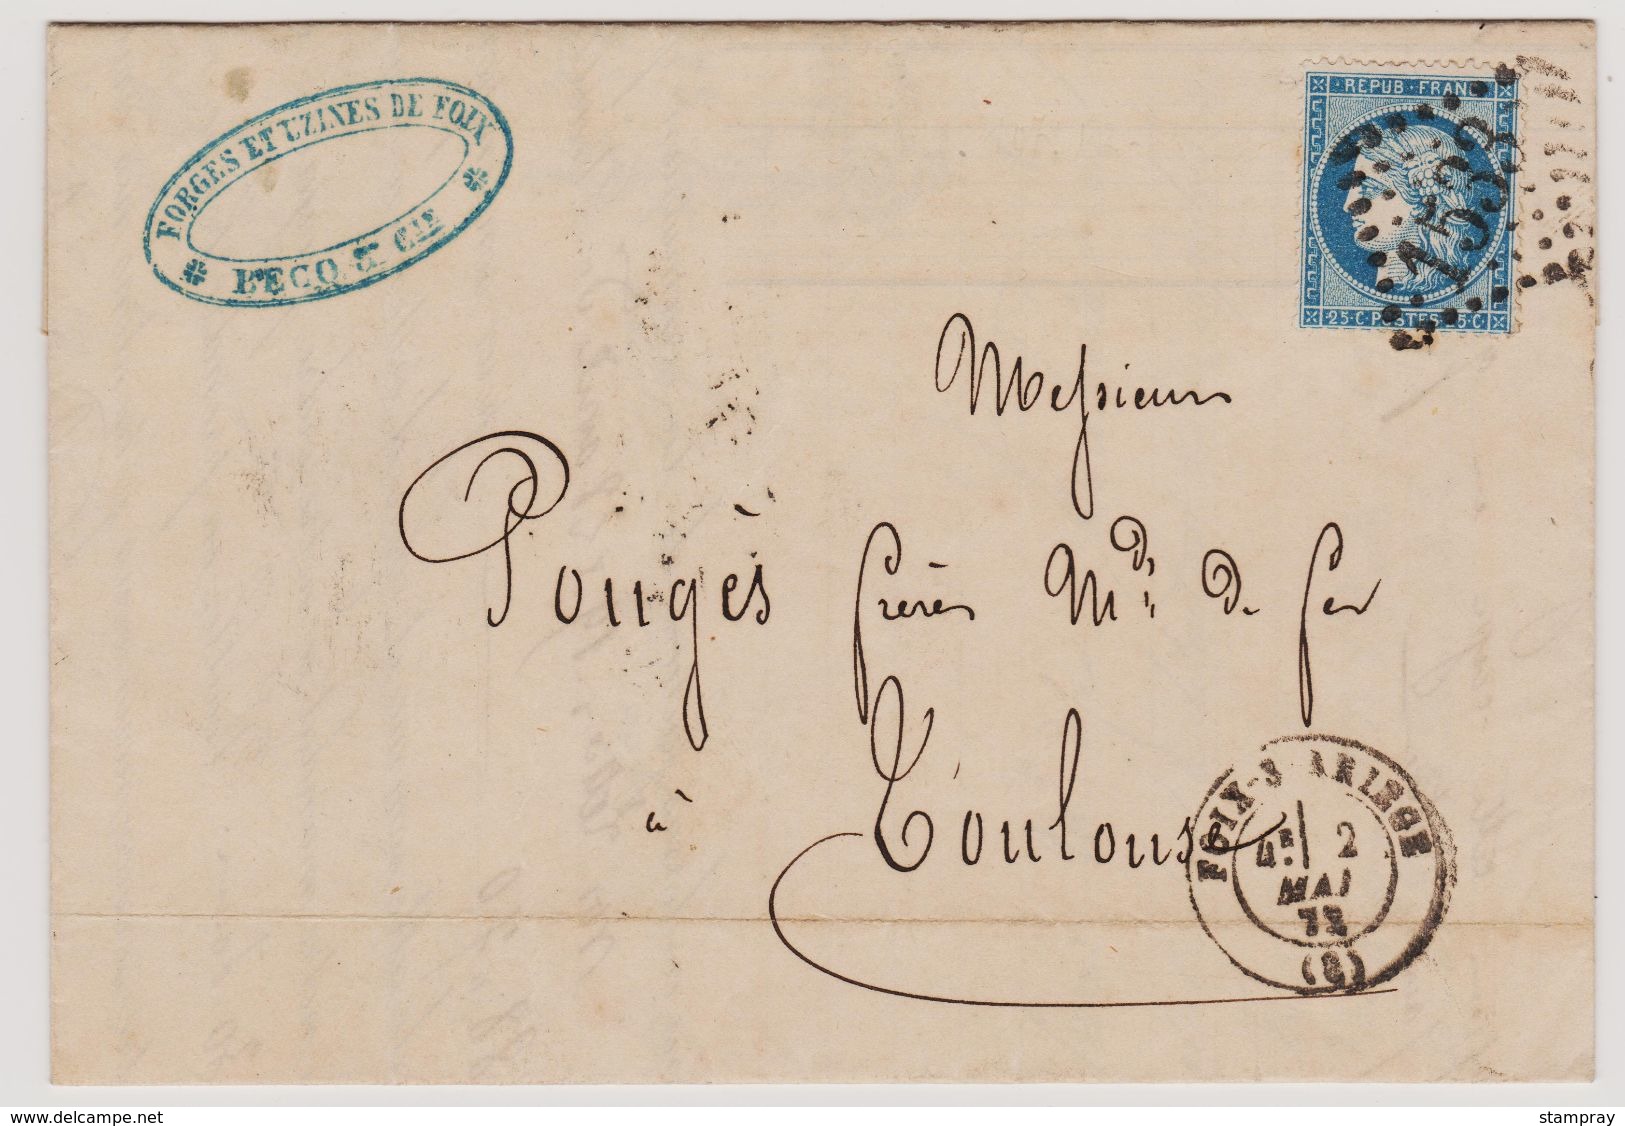 FORGES ET UZINES DE FOIX
BECQ & CIE
REPUB · FRANC
1538
25 · C POSTES 25 · C
Messieurs
Pougès frères Mds de fer
à Toulouse
FOIX-S-ARIÈGE
4E 2
MAI
73
(8)
delcampe.net
stampray